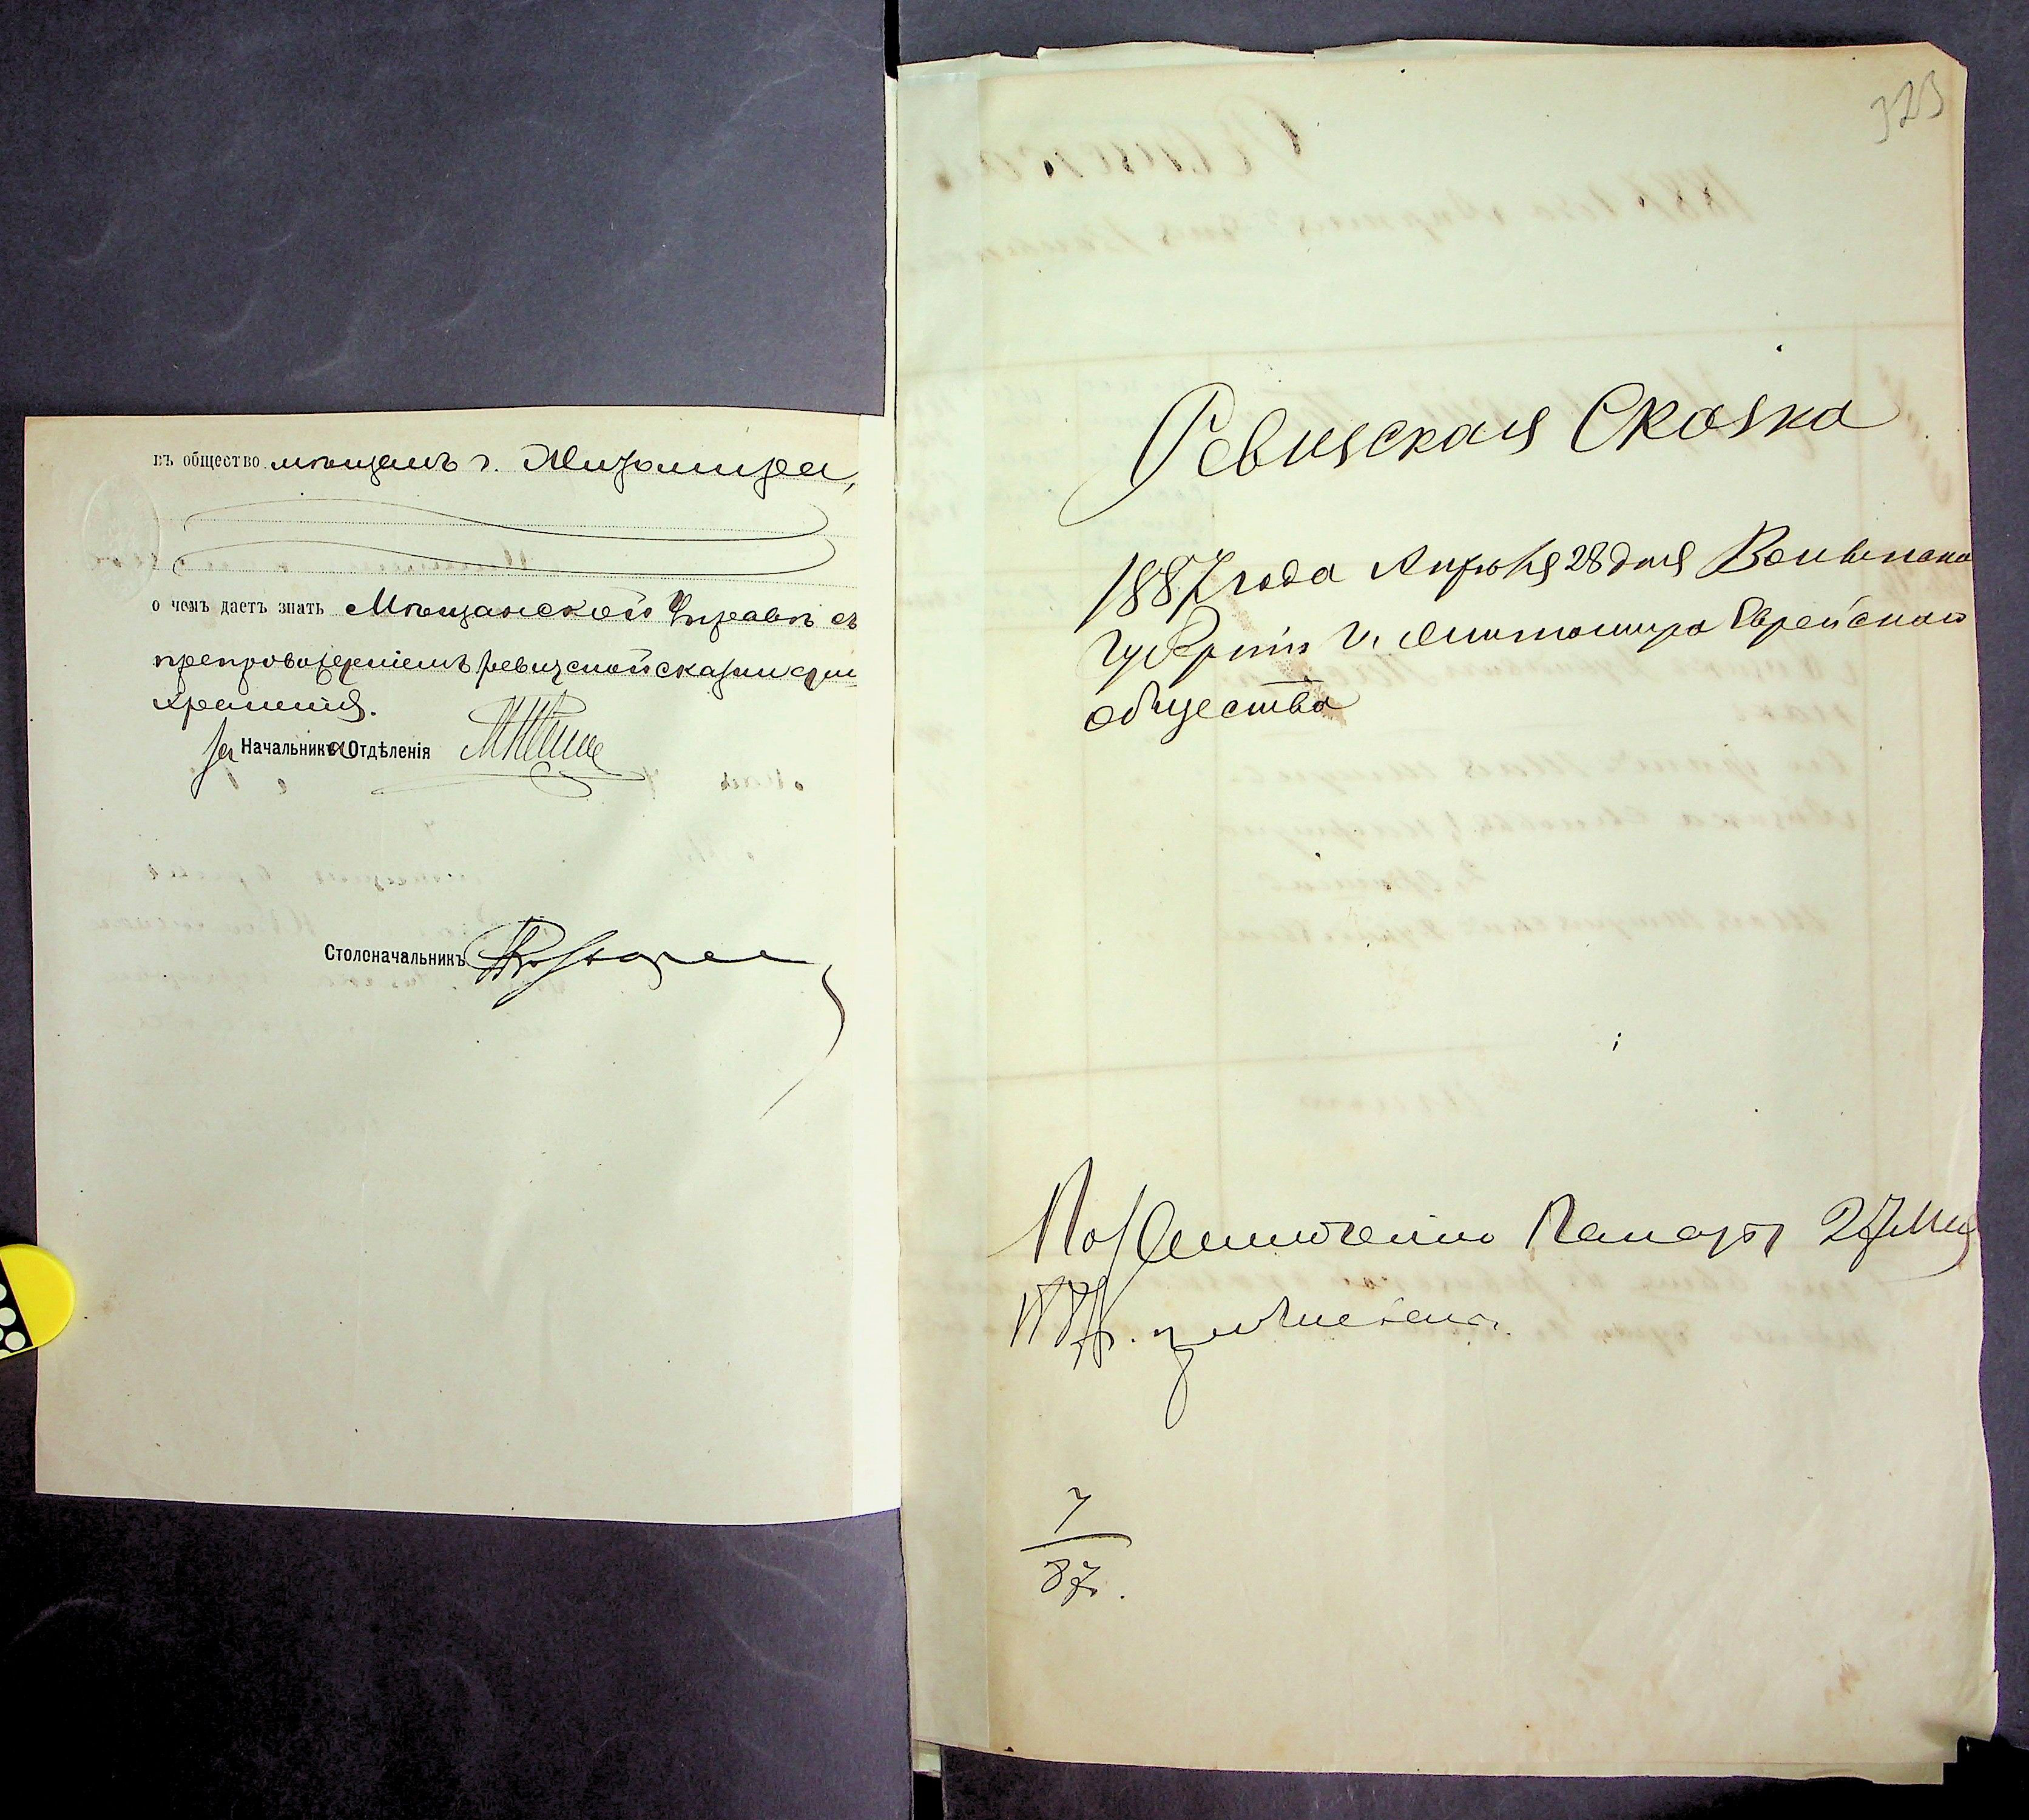 въ общество мѣщанъ г. Житомира,
о чемъ даетъ знать Мѣщанской Управѣ съ
препровожденіемъ ревизской сказки для
храненія.
За Начальника Отдѣленія
Столоначальникъ
323
Ревизская Сказка
1887 года Апрѣля 28 дня Волынской
Губерніи Г. Житомира Еврейскаго
общества
По Палаты 27 Мая
1887 г.
7
87.